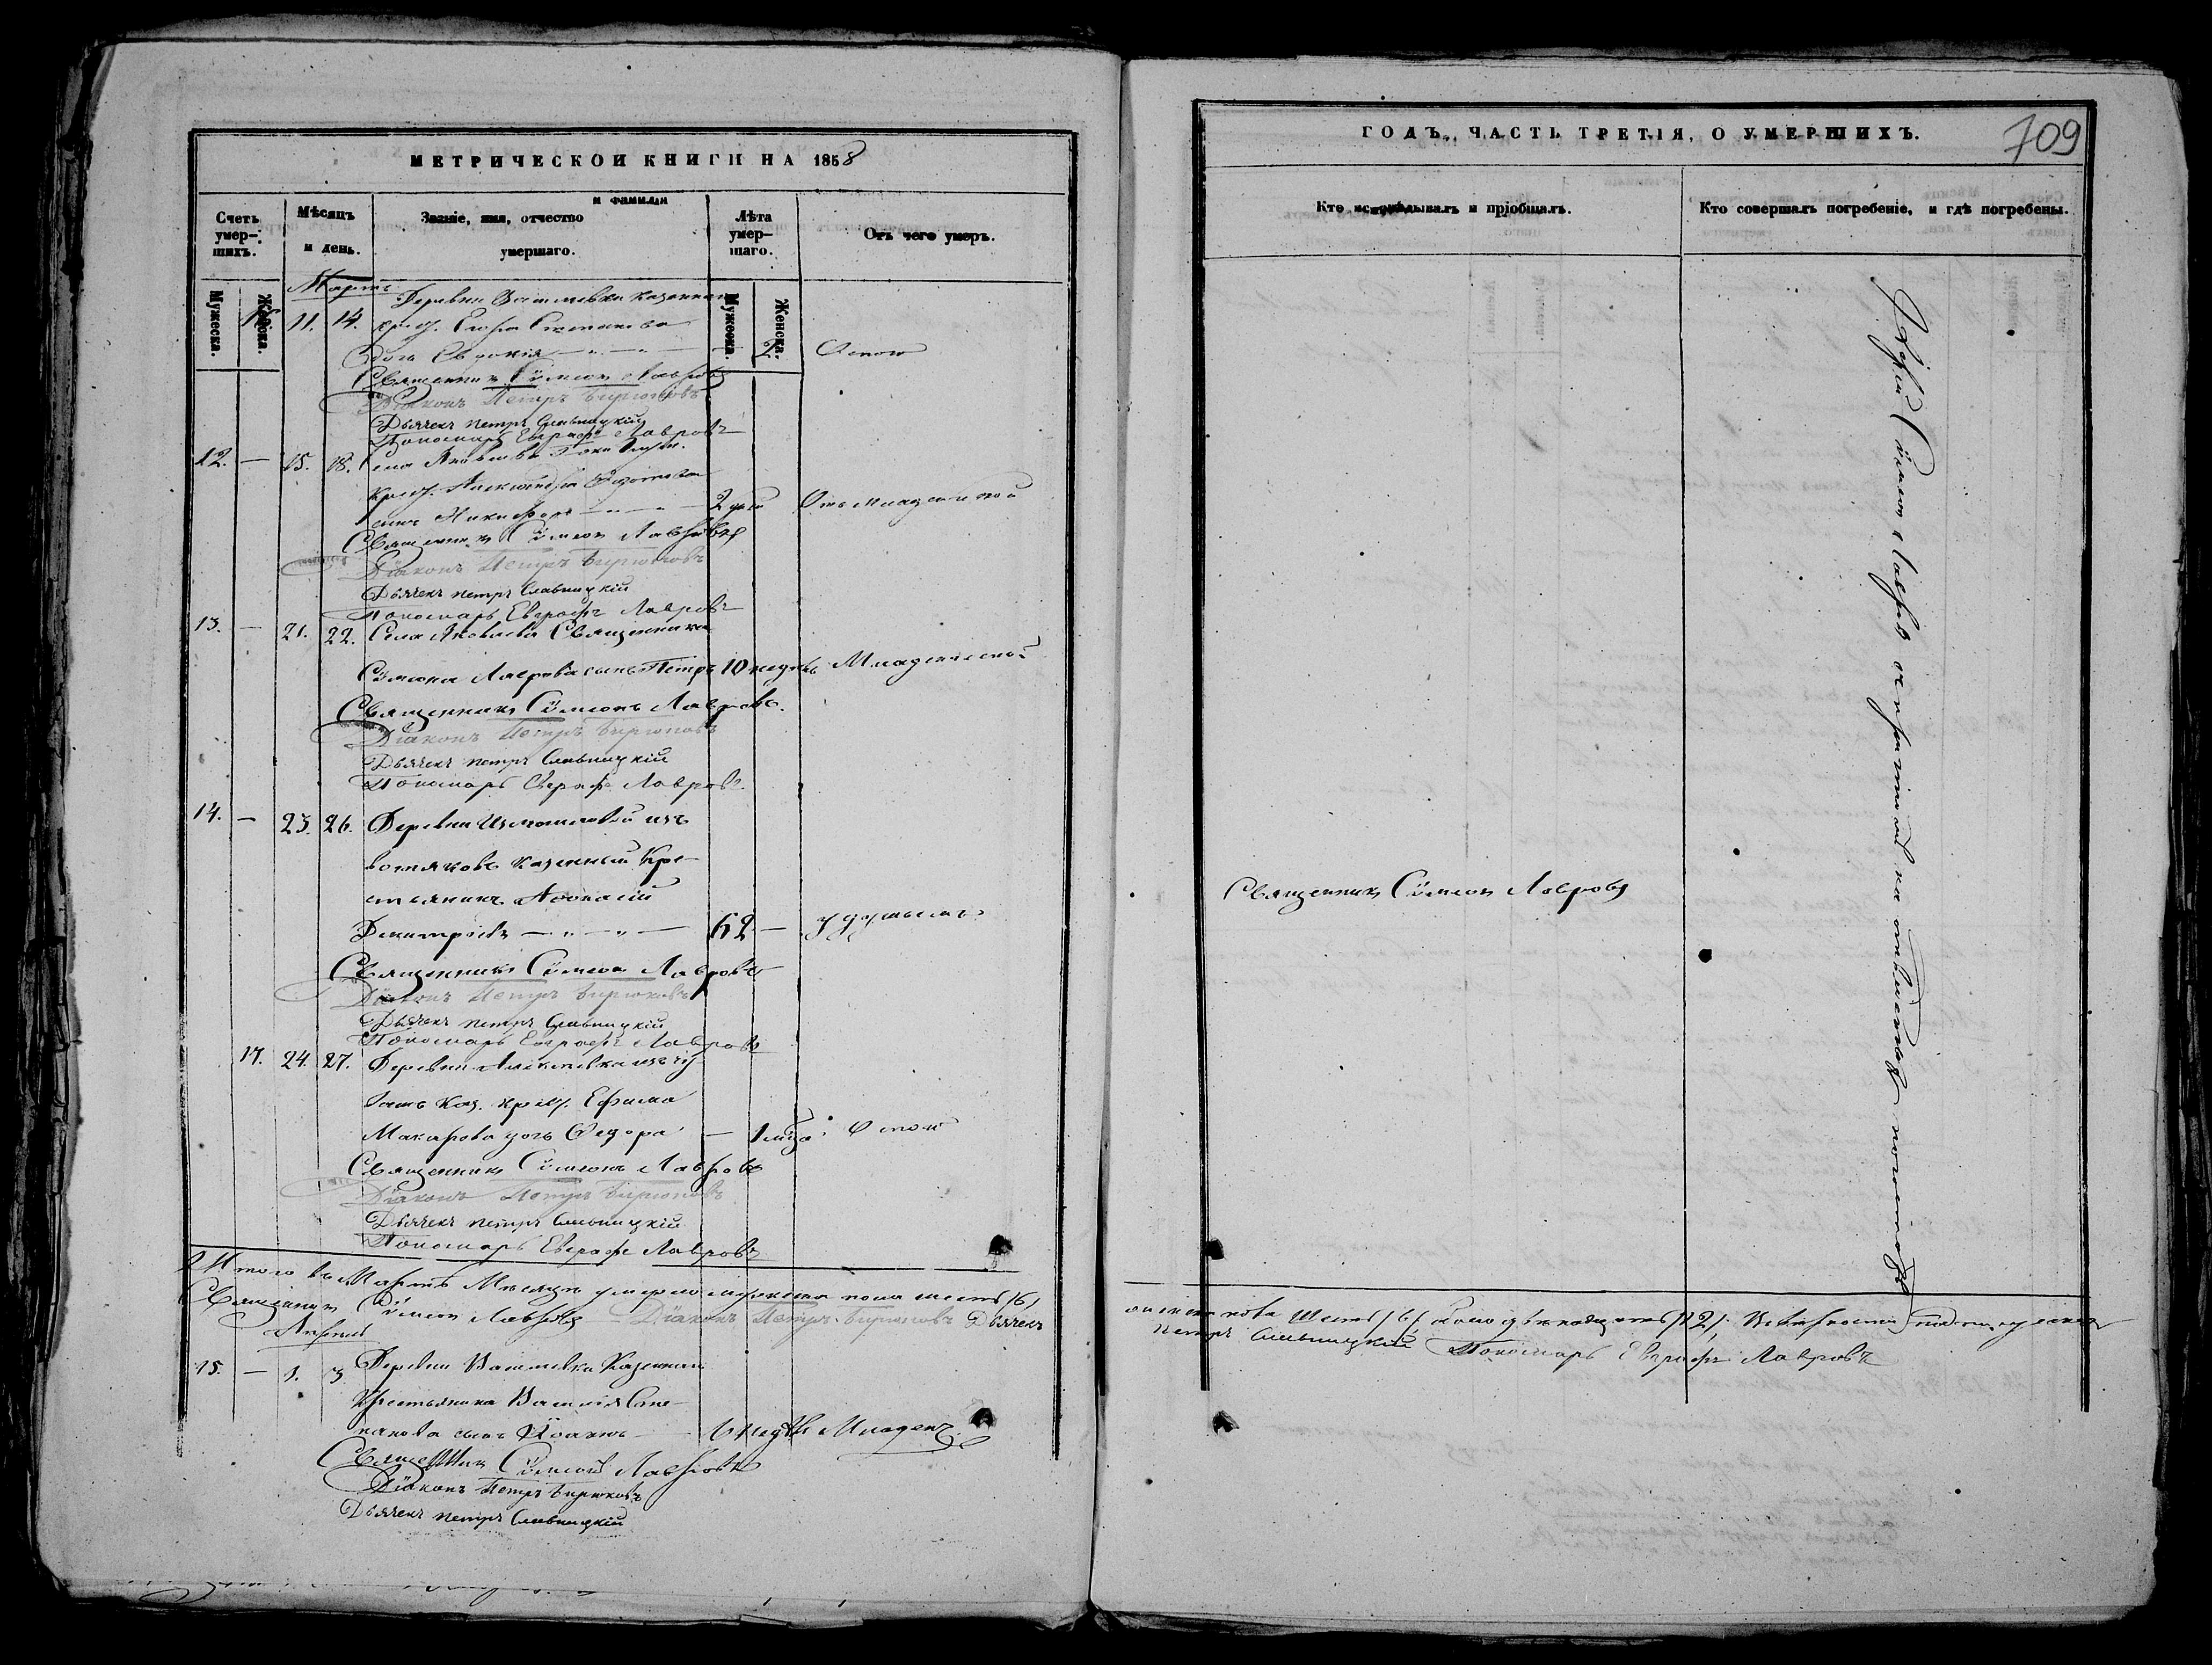 МЕТРИЧЕСКОЙ КНИГИ НА 1858
Счетъ умер-шихъ.
Мѣсяцъ и день.
Званіе, имя, отчество и фамилія умершаго.
Лѣта умер-шаго.
Отъ чего умеръ.
Мужеска.
Женска.
Мужеска.
Женска.
Мартъ
11. 14. Деревни Васильевки казеннаго
крест. Егора Степанова
дочь Евдокія — 2. Оспою
Священникъ Сѵмеонъ Лавровъ
Діаконъ Петръ Бирюковъ
Дьячекъ Петръ Славницкій
Пономарь Евграфъ Лавровъ
12. — 15. 18. Села Яковлева
крест. Александра Федотова
сынъ Никифоръ — 2 дней Отъ младенческой
Священникъ Сѵмеонъ Лавровъ
Діаконъ Петръ Бирюковъ
Дьячекъ Петръ Славницкій
Пономарь Евграфъ Лавровъ
13. — 21. 22. Села Яковлева Священника
Сѵмеона Лаврова сынъ Петръ 10 недѣль Младенческой
Священникъ Сѵмеонъ Лавровъ.
Діаконъ Петръ Бирюковъ
Дьячекъ Петръ Славницкій
Пономарь Евграфъ Лавровъ.
14. — 23. 26. Деревни изъ
вотяковъ казенный Кре-
стьянинъ Аѳонасій
Димитріевъ — 62 — удушьемъ
Священникъ Сѵмеонъ Лавровъ
Діаконъ Петръ Бирюковъ
Дьячекъ Петръ Славницкій
Пономарь Евграфъ Лавровъ
17. 24. 27. Деревни изъ чу-
вашъ каз. крест. Ефима
Макарова дочь Ѳедора — Оспою
Священникъ Сѵмеонъ Лавровъ
Діаконъ Петръ Бирюковъ
Дьячекъ Петръ Славницкій
Пономарь Евграфъ Лавровъ
Итого въ Мартѣ Мѣсяцѣ умерло мужеска пола шесть /6/
Священникъ Сѵмеонъ Лавровъ Діаконъ Петръ Бирюковъ Дьячекъ
Апрѣль
15. — 1. 3 Деревни Васильевки Казеннаго
Крестьянина Василія Сте-
панова сынъ Іоаннъ — 6 недѣль Младенч.
Священникъ Сѵмеонъ Лавровъ
Діаконъ Петръ Бирюковъ
Дьячекъ Петръ Славницкій
ГОДЪ, ЧАСТЬ ТРЕТІЯ, О УМЕРШИХЪ.
709
Кто исповѣдывалъ и пріобщалъ.
Кто совершалъ погребеніе, и гдѣ погребены.
Священникъ Сѵмеонъ Лавровъ
Іерей Сѵмеонъ Лавровъ съ причтомъ на отведенномъ
женска пола шесть /6/ обоего двѣнадцать /12/;
Петръ Славницкій Пономарь Евграфъ Лавровъ